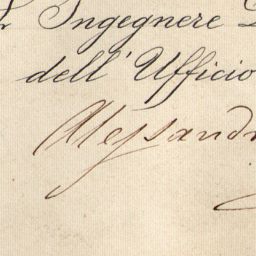 Ingegnere
dell' Ufficio
Alessandr